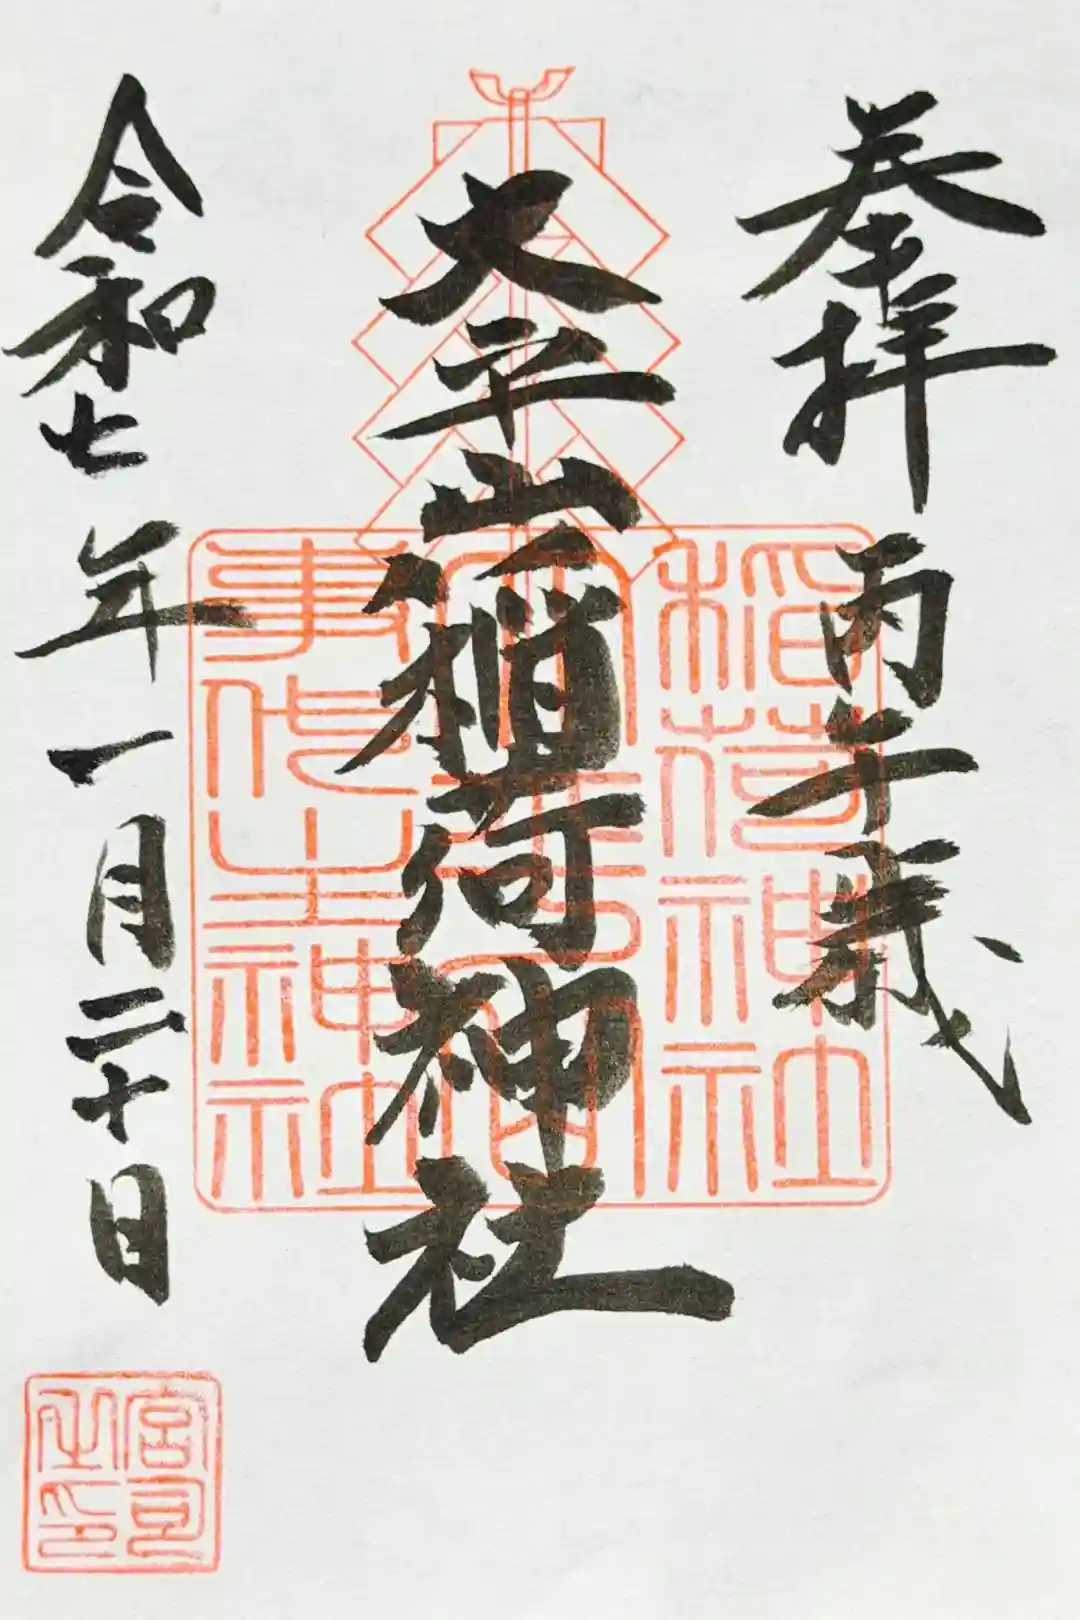 奉拝
大平山稲荷神社
令和七年一月二十日
稲荷神社
事代主神社
宮司之印